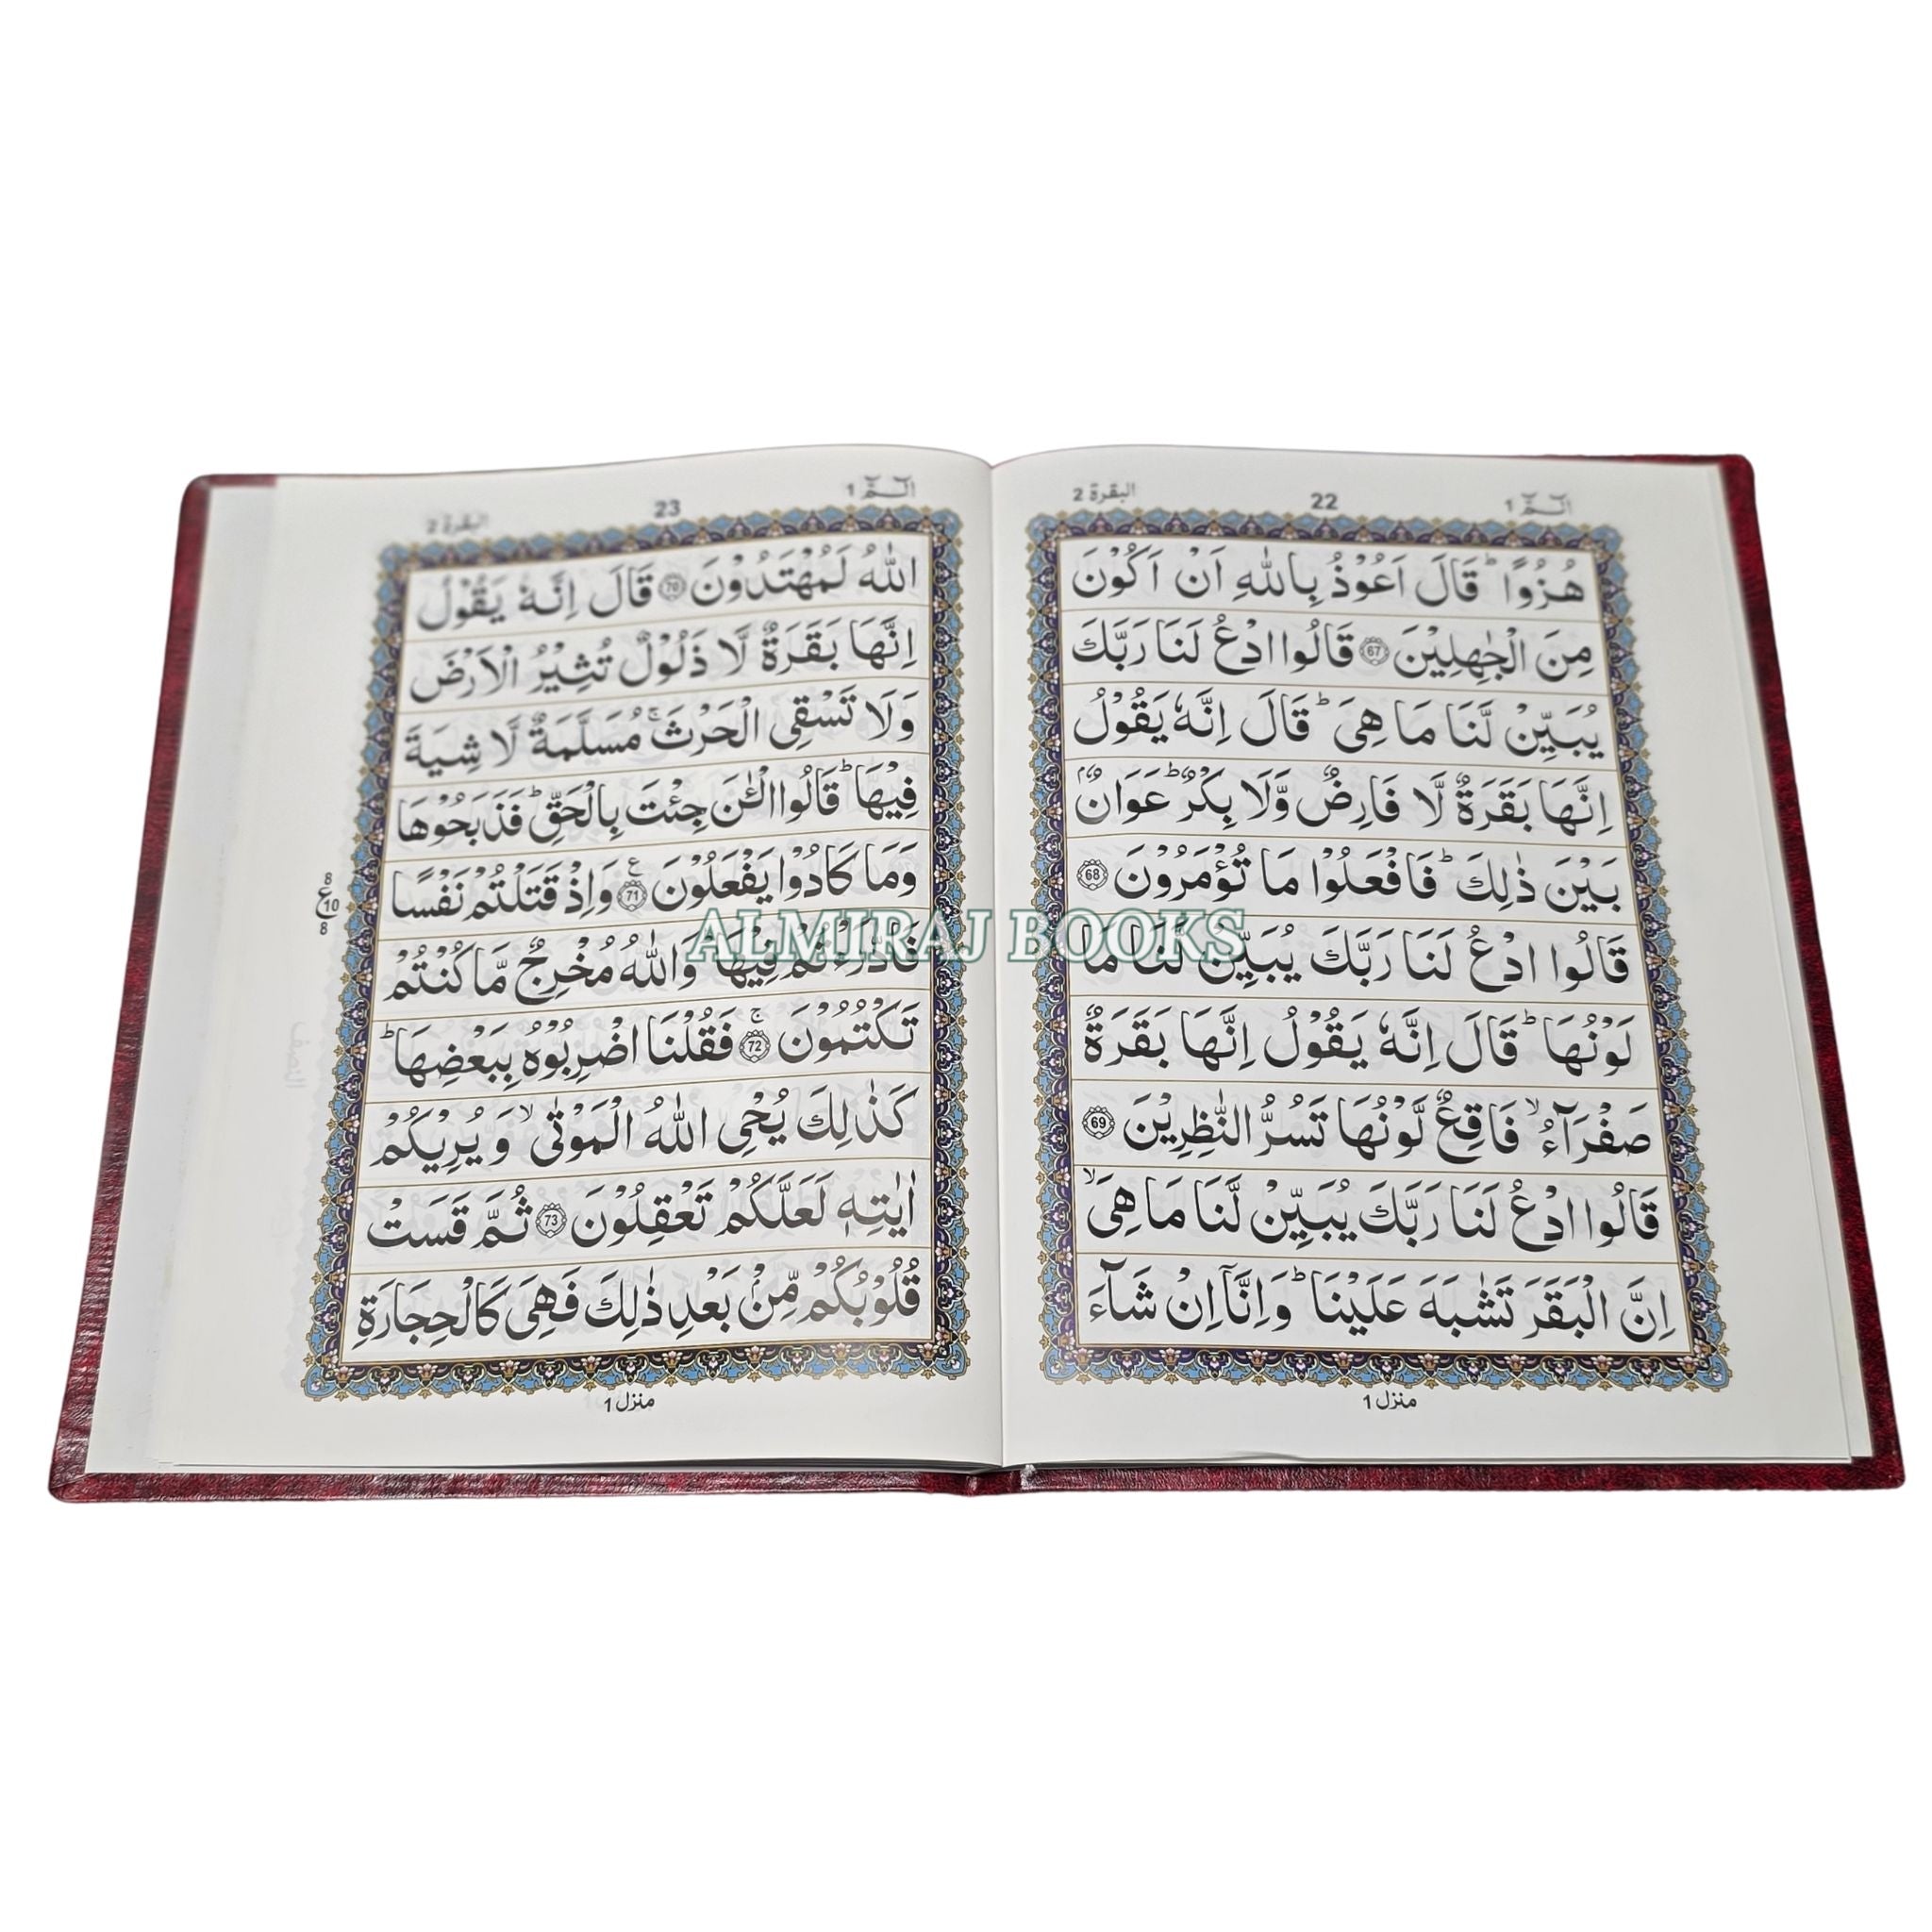 الٓمّٓ 1
22
البقرة 2
هُزُوًا ؕ قَالَ اَعُوْذُ بِاللّٰهِ اَنْ اَكُوْنَ
مِنَ الْجٰهِلِيْنَ 67 قَالُوا ادْعُ لَنَا رَبَّكَ
يُبَيِّنْ لَّنَا مَا هِىَ ؕ قَالَ اِنَّهٗ يَقُوْلُ
اِنَّهَا بَقَرَةٌ لَّا فَارِضٌ وَّلَا بِكْرٌ ؕ عَوَانٌۢ
بَيْنَ ذٰلِكَ ؕ فَافْعَلُوْا مَا تُؤْمَرُوْنَ 68
قَالُوا ادْعُ لَنَا رَبَّكَ يُبَيِّنْ لَّنَا مَا
لَوْنُهَا ؕ قَالَ اِنَّهٗ يَقُوْلُ اِنَّهَا بَقَرَةٌ
صَفْرَآءُ ۙ فَاقِعٌ لَّوْنُهَا تَسُرُّ النّٰظِرِيْنَ 69
قَالُوا ادْعُ لَنَا رَبَّكَ يُبَيِّنْ لَّنَا مَا هِىَ ۙ
اِنَّ الْبَقَرَ تَشٰبَهَ عَلَيْنَا ؕ وَاِنَّاۤ اِنْ شَآءَ
منزل 1
الٓمّٓ 1
23
البقرة 2
اللّٰهُ لَمُهْتَدُوْنَ 70 قَالَ اِنَّهٗ يَقُوْلُ
اِنَّهَا بَقَرَةٌ لَّا ذَلُوْلٌ تُثِيْرُ الْاَرْضَ
وَلَا تَسْقِى الْحَرْثَ ۚ مُسَلَّمَةٌ لَّا شِيَةَ
فِيْهَا ؕ قَالُوا الْـٰٔنَ جِئْتَ بِالْحَقِّ ؕ فَذَبَحُوْهَا
وَمَا كَادُوْا يَفْعَلُوْنَ 71 ع وَاِذْ قَتَلْتُمْ نَفْسًا
8 ع 10 8
فَادّٰرَءْتُمْ فِيْهَا ؕ وَاللّٰهُ مُخْرِجٌ مَّا كُنْتُمْ
تَكْتُمُوْنَ 72 ۚ فَقُلْنَا اضْرِبُوْهُ بِبَعْضِهَا ؕ
كَذٰلِكَ يُحْىِ اللّٰهُ الْمَوْتٰى ۙ وَيُرِيْكُمْ
اٰيٰتِهٖ لَعَلَّكُمْ تَعْقِلُوْنَ 73 ثُمَّ قَسَتْ
قُلُوْبُكُمْ مِّنْۢ بَعْدِ ذٰلِكَ فَهِىَ كَالْحِجَارَةِ
منزل 1
ALMIRAJ BOOKS